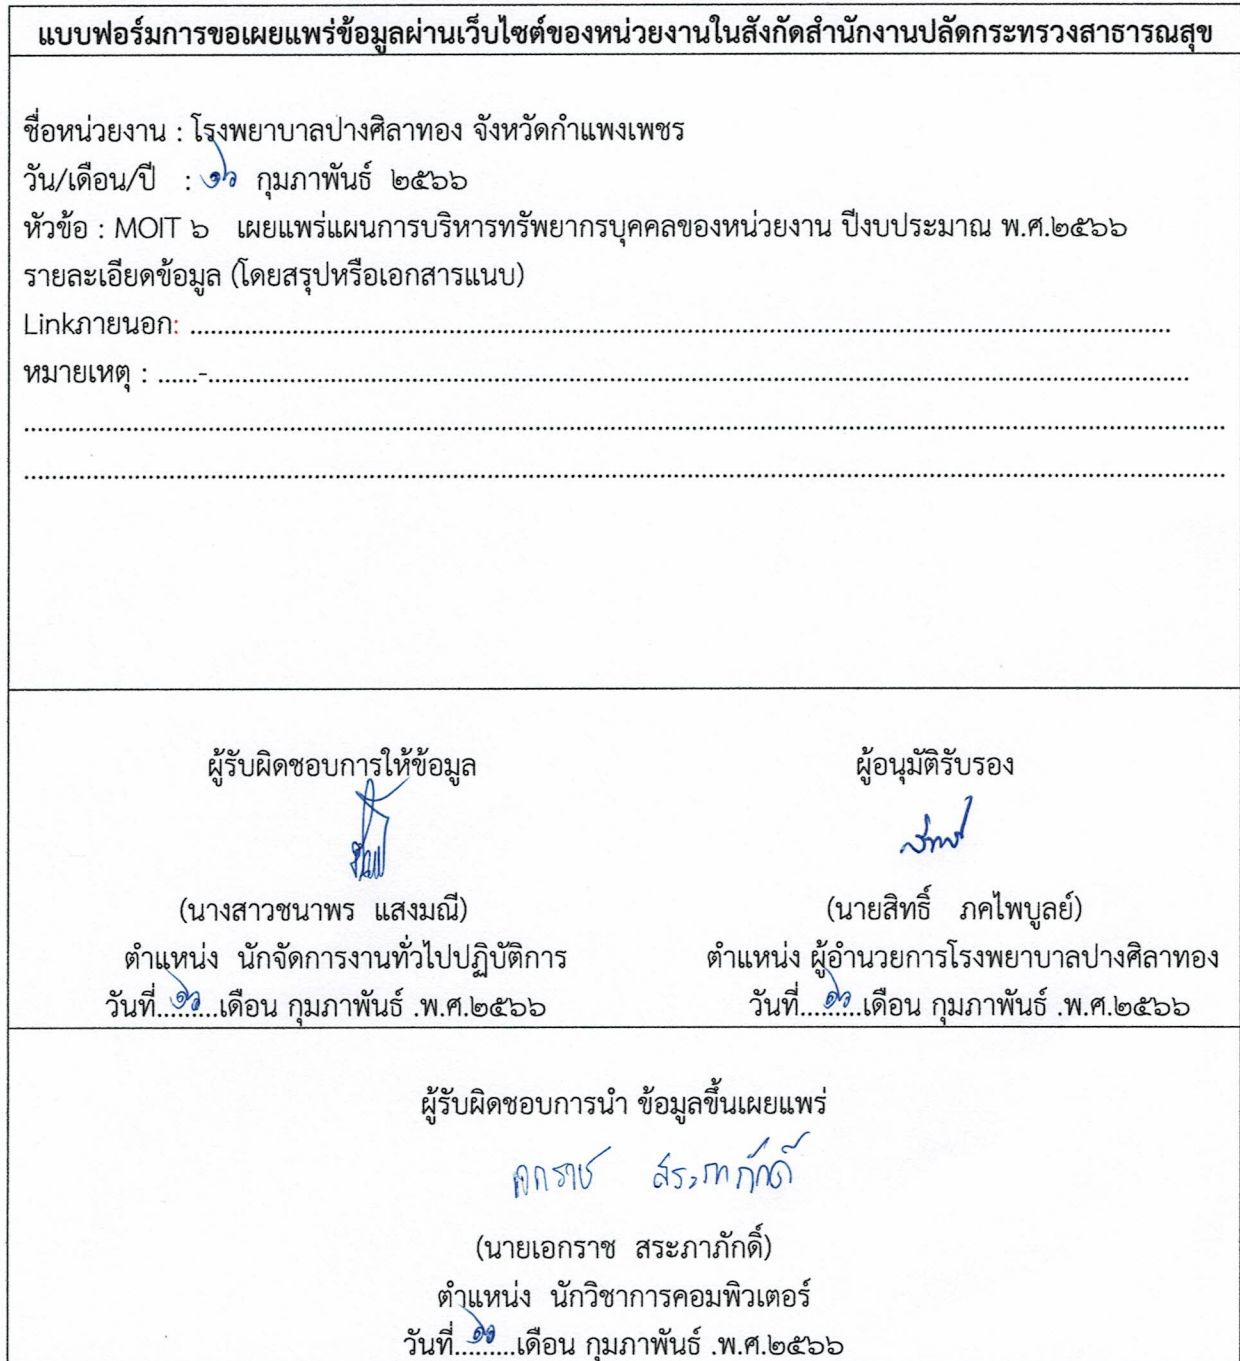 แบบฟอร์มการขอเผยแพร่ข้อมูลผ่านเว็บไซต์ของหน่วยงานในสังกัดสำนักงานปลัดกระทรวงสาธารณสุข
ชื่อหน่วยงาน : โรงพยาบาลปางศิลาทอง จังหวัดกำแพงเพชร
วัน/เดือน/ปี : ๑๖ กุมภาพันธ์ ๒๕๖๖
หัวข้อ : MOIT ๖ เผยแพร่แผนการบริหารทรัพยากรบุคคลของหน่วยงาน ปีงบประมาณ พ.ศ.๒๕๖๖
รายละเอียดข้อมูล (โดยสรุปหรือเอกสารแนบ)
Linkภายนอก: ..........
หมายเหตุ : ......-..........
ผู้รับผิดชอบการให้ข้อมูล ผู้อนุมัติรับรอง
(นางสาวชนาพร แสงมณี) (นายสิทธิ์ ภคไพบูลย์)
ตำแหน่ง นักจัดการงานทั่วไปปฏิบัติการ ตำแหน่ง ผู้อำนวยการโรงพยาบาลปางศิลาทอง
วันที่...๑๖...เดือน กุมภาพันธ์ .พ.ศ.๒๕๖๖ วันที่...๑๖...เดือน กุมภาพันธ์ .พ.ศ.๒๕๖๖
ผู้รับผิดชอบการนำ ข้อมูลขึ้นเผยแพร่
เอกราช สระภาภักดิ์
(นายเอกราช สระภาภักดิ์)
ตำแหน่ง นักวิชาการคอมพิวเตอร์
วันที่...๑๖...เดือน กุมภาพันธ์ .พ.ศ.๒๕๖๖